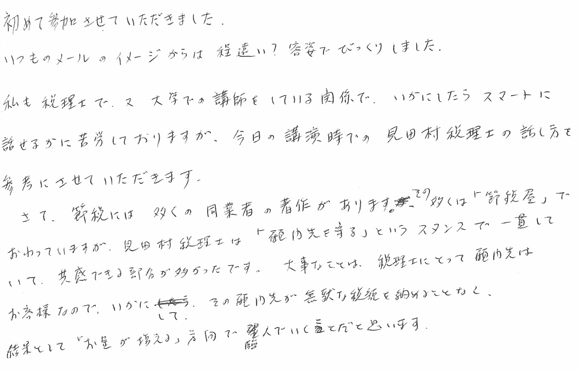 初めて参加させていただきました.
いつものメールのイメージからは程遠い?容姿でびっくりしました.
私も税理士で.又大学での講師をしている関係で.いかにしたらスマートに
話せるかに苦労しておりますが、今日の講演時での見田村税理士の話し方を
参考にさせていただきます.
さて、節税には多くの同業者の著作があります。その多くは「節税屋」で
おわっていますが、見田村税理士は「顧問先を守る」というスタンスで一貫して
いて、共感できる部分が多かったです。大事なことは、税理士にとって顧問先は
お客様なので、いかにして.その顧問先が無駄な税金を納めることなく、
結果として「お金が増える」方向で臨んでいくことだと思います.